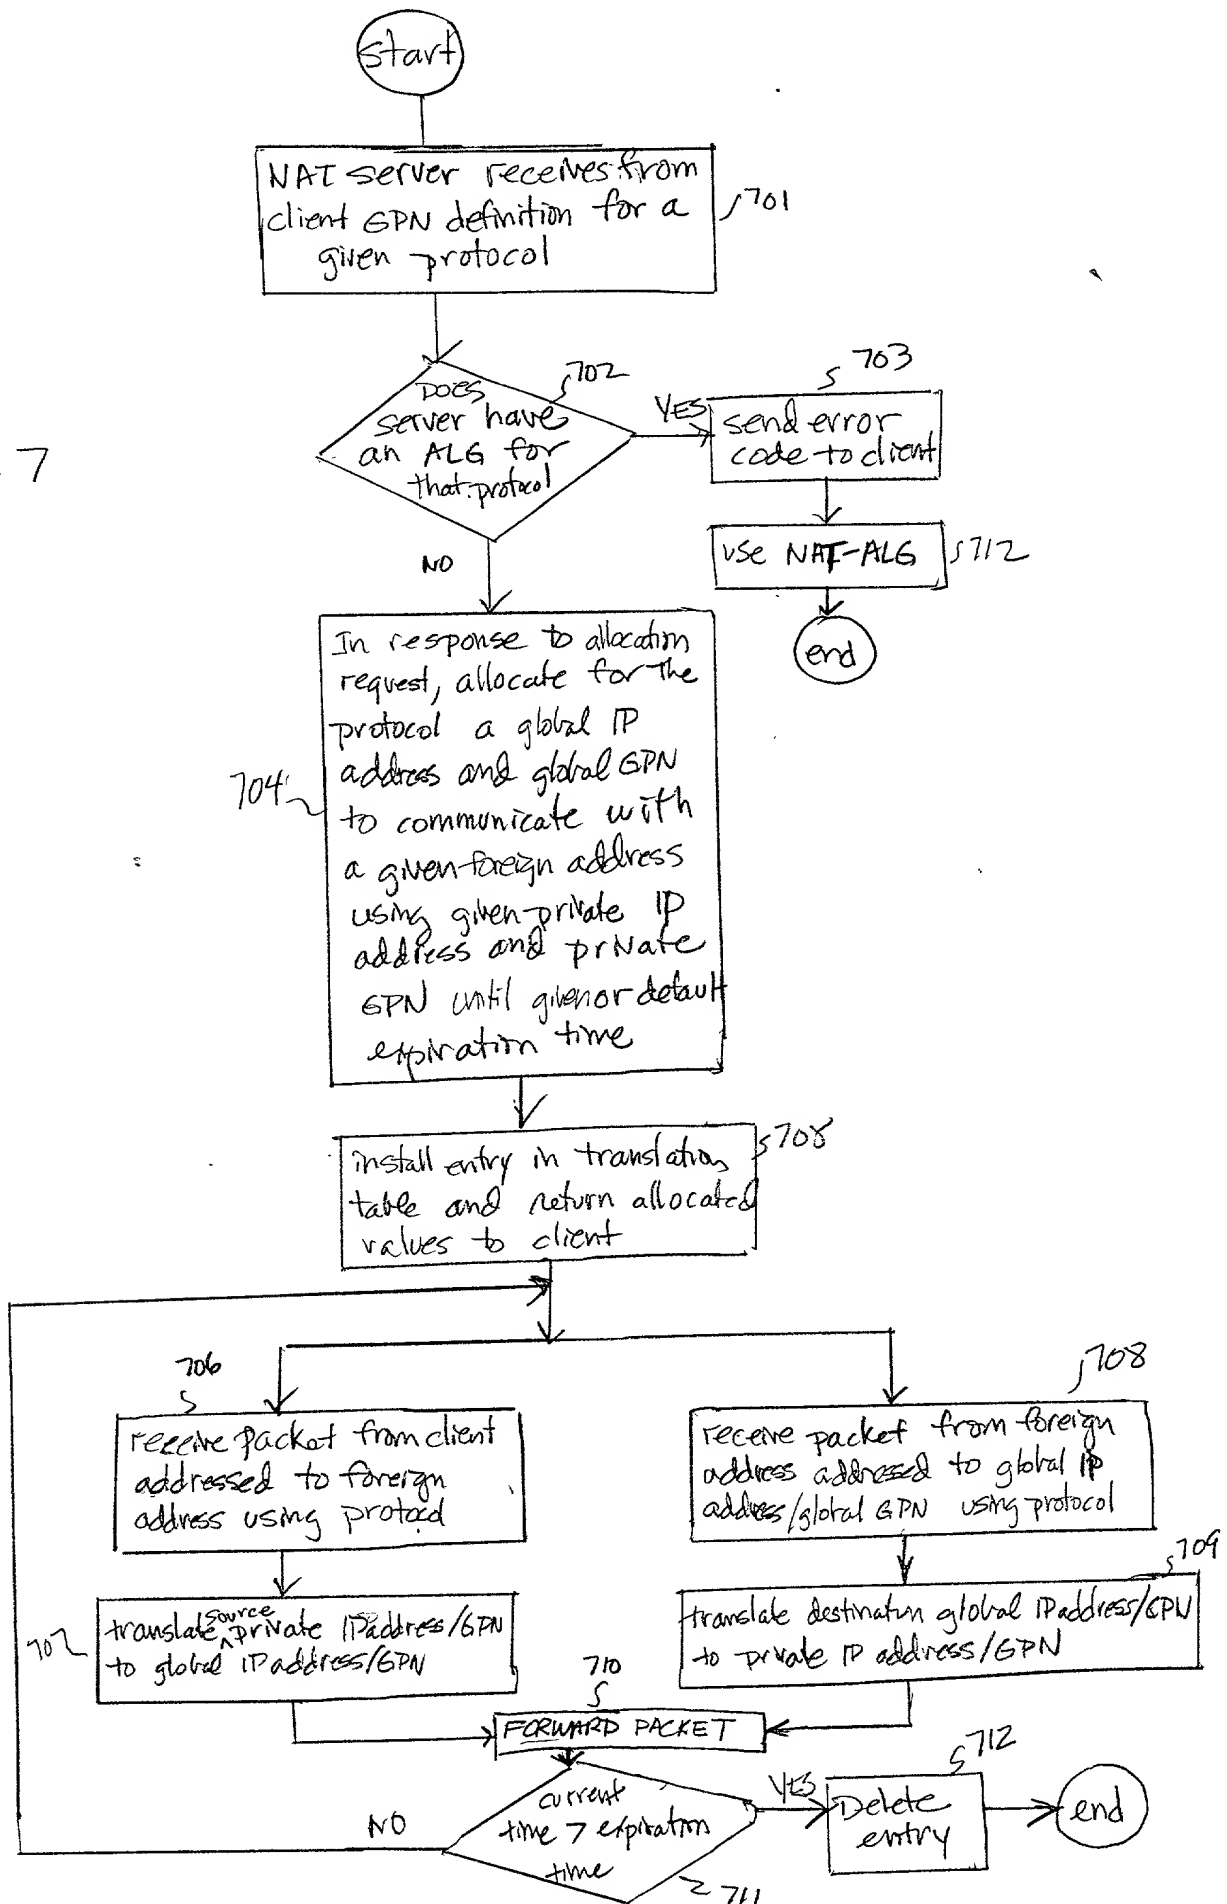 start
NAT server receives from
client GPN definition for a
given protocol
701
702
DOES
server have
an ALG for
that protocol
YES
703
send error
code to client
7
use NAT-ALG
712
NO
end
In response to allocation
request, allocate for the
protocol a global IP
address and global GPN
to communicate with
a given foreign address
using given private IP
address and private
GPN until given or default
expiration time
704
705
install entry in translation
table and return allocated
values to client
706
receive packet from client
addressed to foreign
address using protocol
708
receive packet from foreign
address addressed to global IP
address/global GPN using protocol
709
707
translate source private IP address/GPN
to global IP address/GPN
translate destination global IP address/GPN
to private IP address/GPN
710
FORWARD PACKET
NO
current
time > expiration
time
711
YES
712
Delete
entry
end